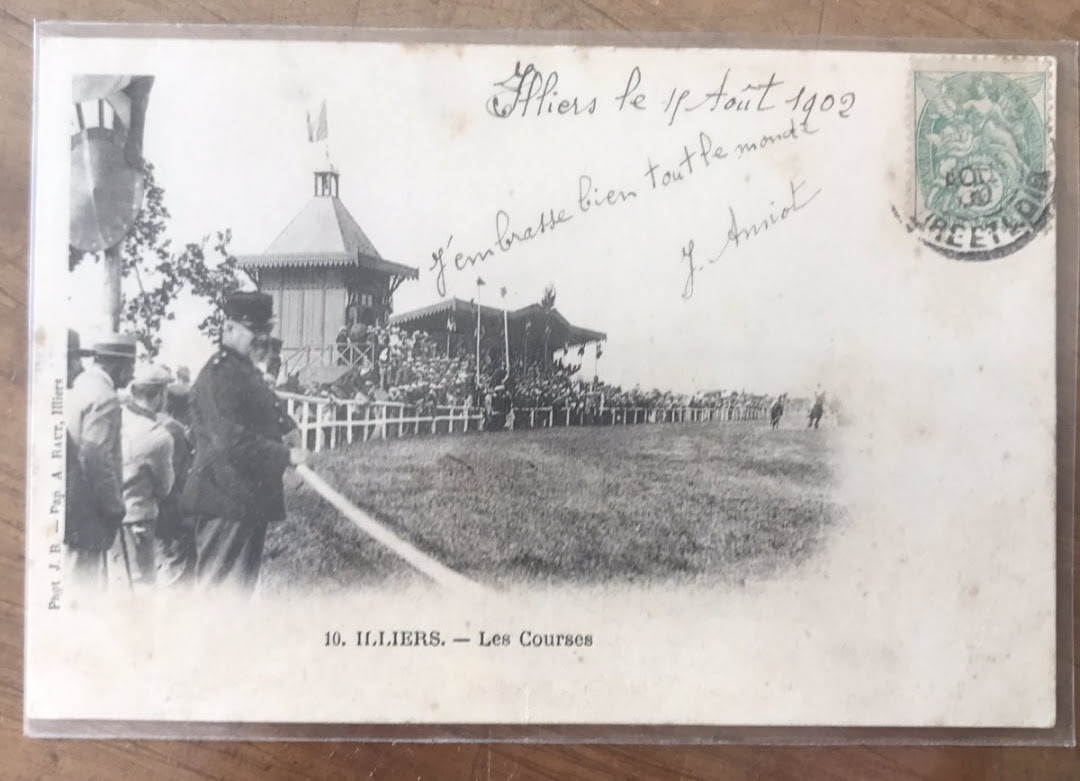 Illiers le 15 Août 1902
J'embrasse bien tout le monde
J. Amiot
EURE ET LOIR
Phot J. B. — Pap A. RAUT, Illiers
10. ILLIERS. — Les Courses